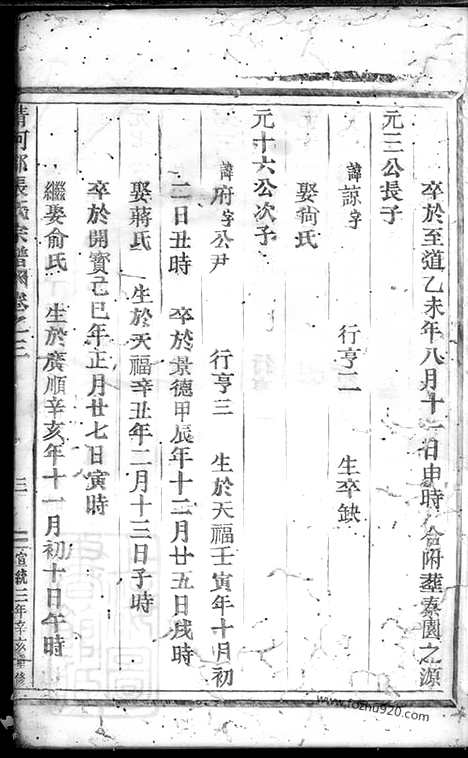 卒於至道乙未年八月十一日申時 合附葬泰園之源
元三公長子
諱諒字 行亨二 生卒缺
娶尙氏
元十六公次子
諱府字公尹 行亨三 生於天福壬寅年十月初
二日丑時 卒於景德甲辰年十二月廿五日戌時
娶蔣氏 生於天福辛丑年二月十三日子時
卒於開寶己巳年正月廿七日寅時
繼娶俞氏 生於廣順辛亥年十一月初十日午時
清河郡張氏宗譜 卷之三 三 宣統三年辛亥重修
www.fozhu920.com